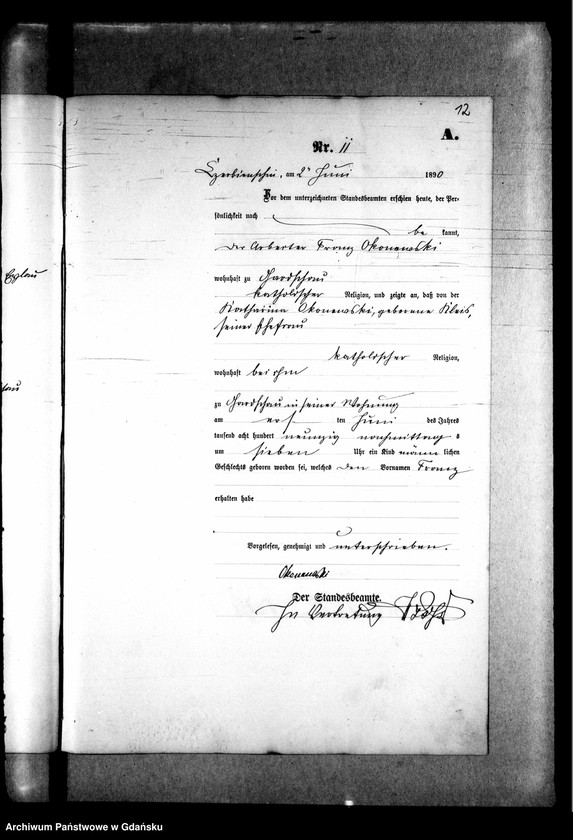 12
A.
Nr. 11
Czerbienschin, am 2ⁿ Juni 1890
Vor dem unterzeichneten Standesbeamten erschien heute, der Per-
sönlichkeit nach
be kannt,
der Arbeiter Franz Okonewski
wohnhaft zu Gardschau
katholischer Religion, und zeigte an, daß von der
Katharina Okonewski, geborene Kleis,
seiner Ehefrau
katholischer Religion,
wohnhaft bei ihm
zu Gardschau in seiner Wohnung
am ersten Juni des Jahres
tausend acht hundert neunzig nachmittags
um sieben Uhr ein Kind männlichen
Geschlechts geboren worden sei, welches den Vornamen Franz
erhalten habe
Vorgelesen, genehmigt und unterschrieben.
Okonewski
Der Standesbeamte.
In Vertretung
Archiwum Państwowe w Gdańsku